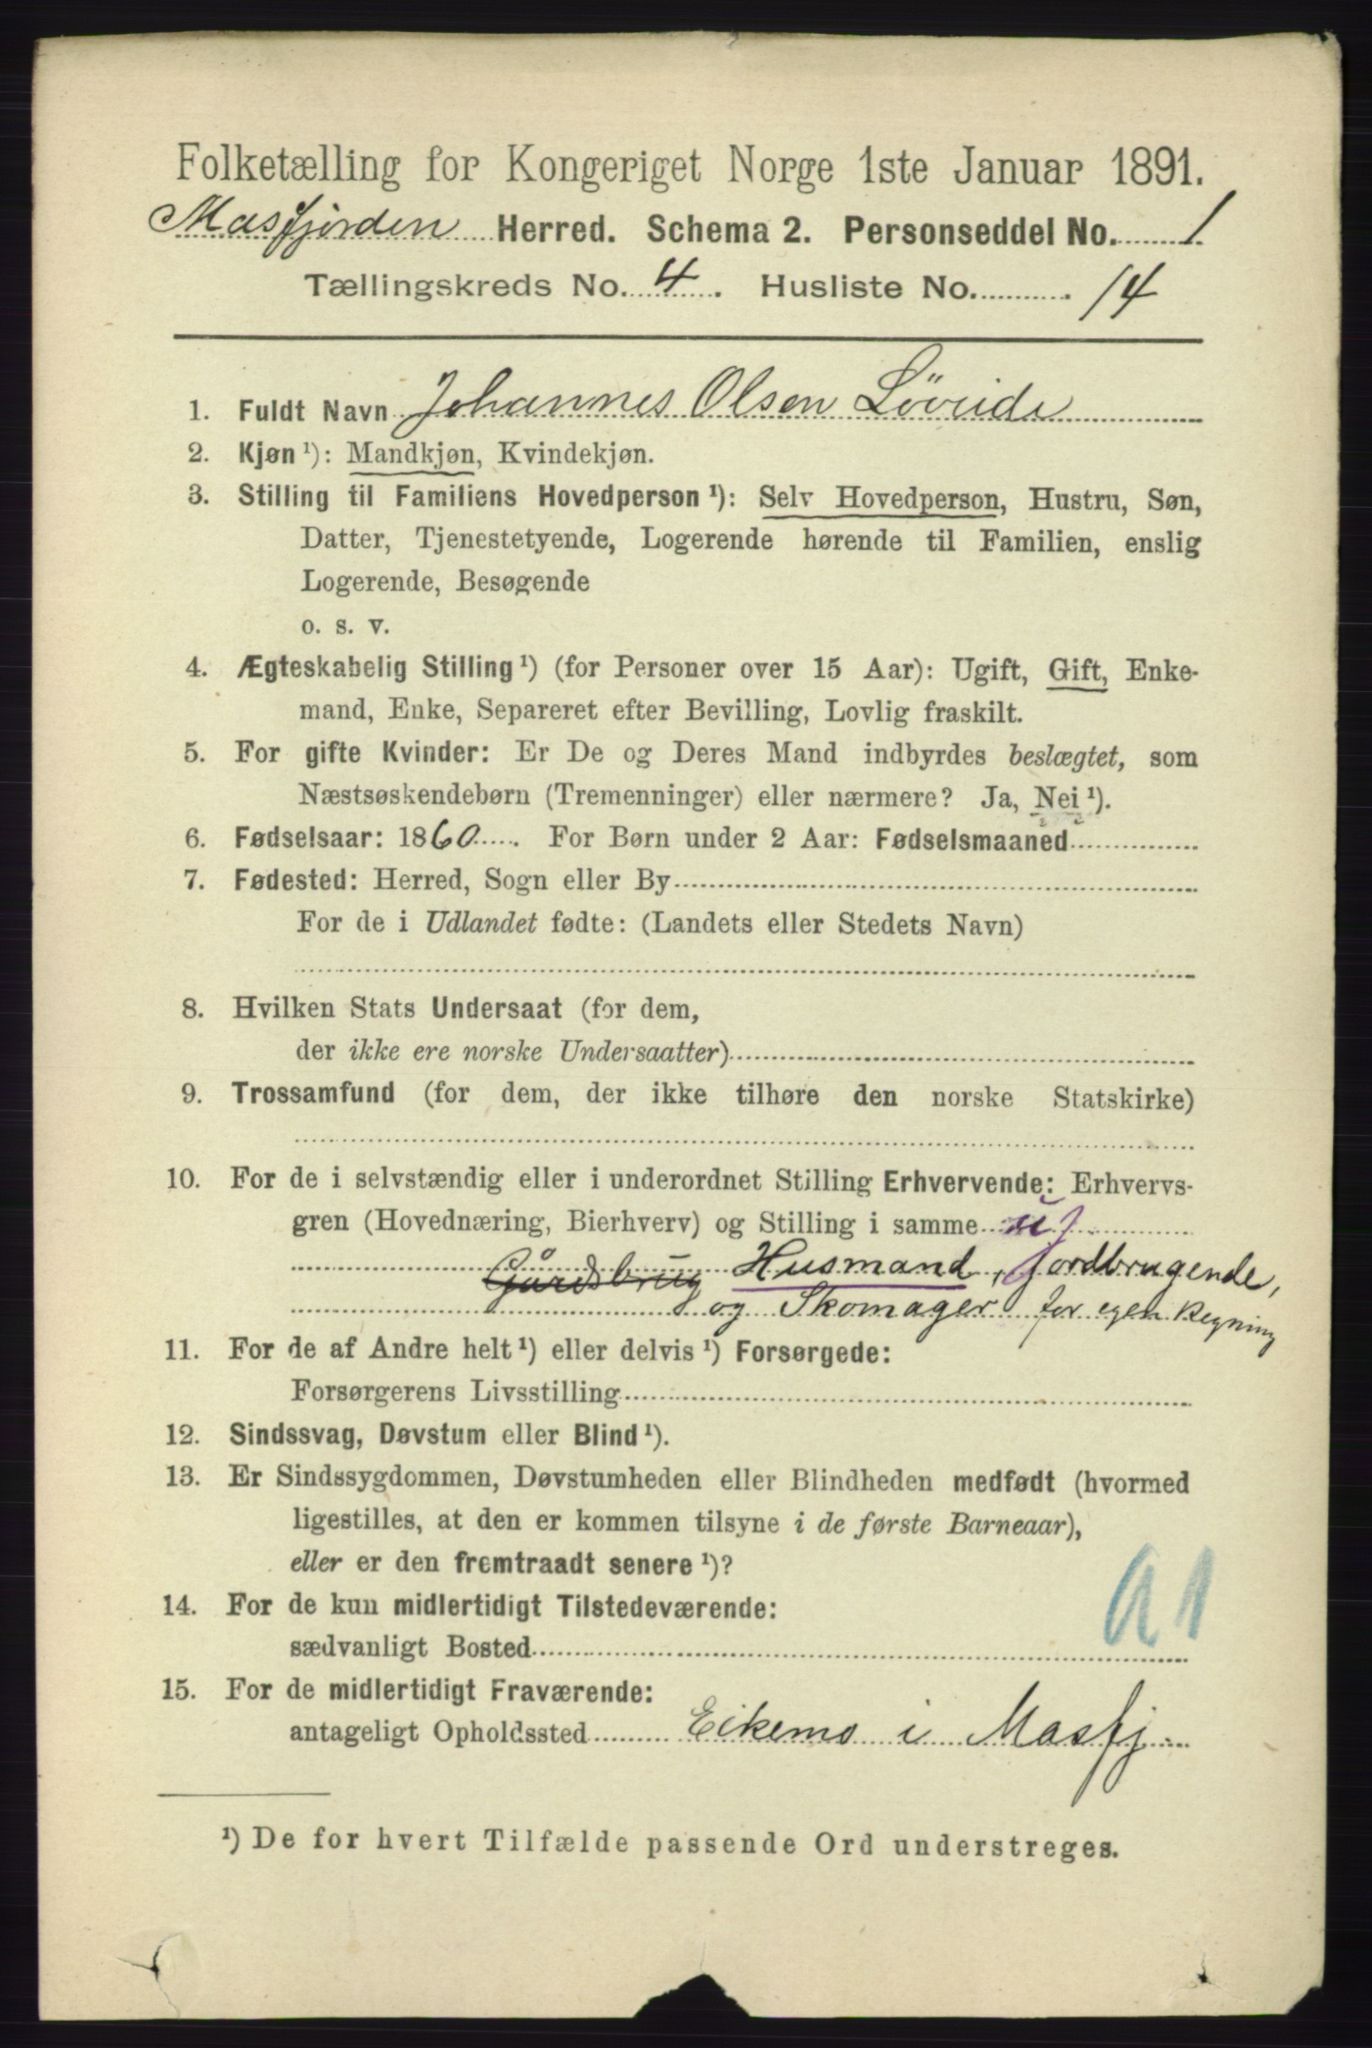 Folketælling for Kongeriget Norge 1ste Januar 1891.
Masfjorden Herred. Schema 2. Personseddel No. 1
Tællingskreds No. 4. Husliste No. 14
1. Fuldt Navn Johannes Olsen Løveide
2. Kjøn ¹): Mandkjøn, Kvindekjøn.
3. Stilling til Familiens Hovedperson ¹): Selv Hovedperson, Hustru, Søn,
Datter, Tjenestetyende, Logerende hørende til Familien, enslig
Logerende, Besøgende
o. s. v.
4. Ægteskabelig Stilling ¹) (for Personer over 15 Aar): Ugift, Gift, Enke-
mand, Enke, Separeret efter Bevilling, Lovlig fraskilt.
5. For gifte Kvinder: Er De og Deres Mand indbyrdes beslægtet, som
Næstsøskendebørn (Tremenninger) eller nærmere? Ja, Nei ¹).
6. Fødselsaar: 1860. For Børn under 2 Aar: Fødselsmaaned
7. Fødested: Herred, Sogn eller By
For de i Udlandet fødte: (Landets eller Stedets Navn)
8. Hvilken Stats Undersaat (for dem,
der ikke ere norske Undersaatter)
9. Trossamfund (for dem, der ikke tilhøre den norske Statskirke)
10. For de i selvstændig eller i underordnet Stilling Erhvervende: Erhvervs-
gren (Hovednæring, Bierhverv) og Stilling i samme
Gårdsbrug Husmand, Jordbrugende,
og Skomager for egen Regning
11. For de af Andre helt ¹) eller delvis ¹) Forsørgede:
Forsørgerens Livsstilling
12. Sindssvag, Døvstum eller Blind ¹).
13. Er Sindssygdommen, Døvstumheden eller Blindheden medfødt (hvormed
ligestilles, at den er kommen tilsyne i de første Barneaar),
eller er den fremtraadt senere ¹)?
14. For de kun midlertidigt Tilstedeværende:
sædvanligt Bosted
15. For de midlertidigt Fraværende:
antageligt Opholdssted Eikemo i Masfj.
¹) De for hvert Tilfælde passende Ord understreges.